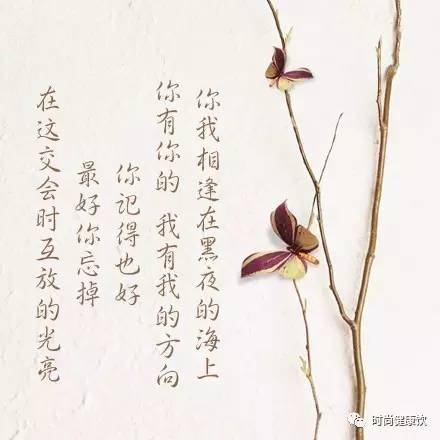 你我相逢在黑夜的海上
你有你的 我有我的方向
你记得也好
最好你忘掉
在这交会时互放的光亮
时尚健康饮